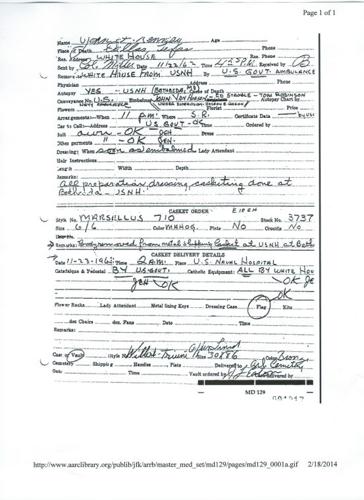 Page 1 of 1
Name John F. Kennedy Age Phone
Place of Death Dallas, Texas Phone
Res. Address WHITE HOUSE Res. Phone
Sent by Col. Miller Date 11/22/63 Time P.M. Received by
Remove WHITE HOUSE FROM USNH By U.S. GOVT. AMBULANCE
Physician Phone
Autopsy YES - USNH (BETHESDA, MD) Cause of Death
Conveyance No. U.S. Embalmer JOHN VAN HOESEN ED STROBLE - TOM ROBINSON
Arrangements: When 11 AM. Where S. R. Certificate Data by USN
Car to Call: Address U.S. GOVT - OK Time Ordered by
Suit own - OK Dress
Other garments " - OK
Dressing: When soon as embalmed Lady Attendant
Hair Instructions
Length Width Depth
Remarks:
All preparation, dressing, casketing done at
Bethesda - USNH.
CASKET ORDER
Style No. MARSELLUS 710 Stock No. 3737
Size 6/6 Color MAHOG. Plate No Crucifix No
Remarks: Body removed from metal shipping casket at USNH at Beth
CASKET DELIVERY DETAILS
Date 11-23-1963 Time 2 A.M. Place U.S. NAVAL HOSPITAL
Catafalque & Pedestal BY US GOVT. Catholic Equipment: ALL BY WHITE HOU
OK
OK
Flower Racks Lady Attendant Metal lining Keys Dressing Case Flag Kits
chairs des. Fans Date Time
Remarks:
Case or Vault Style Wilbert Triune Size 30886 Color Bronz
Cemetery Shipping Handles Plate Delivered to Arl. Cemetery
Date Time Vault ordered by Delivered by
MD 129
http://www.aarclibrary.org/publib/jfk/arrb/master_med_set/md129/pages/md129_0001a.gif 2/18/2014